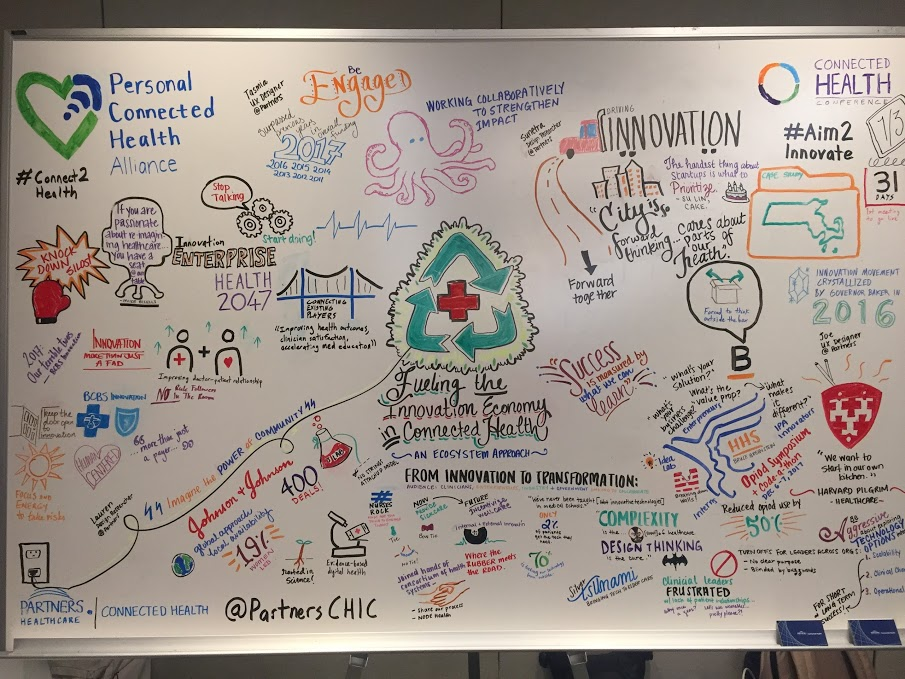 Personal
Connected
Health
Alliance
#Connect2
Health
Tasmia
UX Designer
@Partners
Be
Engaged
2017
2016 2015 2014
2013 2012 2011
WORKING COLLABORATIVELY
TO STRENGTHEN
IMPACT
Sunetra
@Partners
DRIVING
INNOVATION
The hardest thing about
startups is what to
Prioritize.
- SU LIN,
CAKE.
"City is so
forward
thinking...
cares about
parts of
our
health."
Forward
together
CONNECTED
HEALTH
CONFERENCE
#Aim2
Innovate
CASE STUDY
1/3
31
DAYS
KNOCK
DOWN
SILOS!
If you are
passionate
about re-imag-
ing healthcare...
You have a
seat
Stop
Talking
Start doing!
Innovation
ENTERPRISE
HEALTH
2047
CONNECTING
EXISTING
PLAYERS
"Improving health outcomes,
clinician satisfaction,
accelerating med education"
Forced to think
outside the box
B
INNOVATION MOVEMENT
CRYSTALLIZED
BY GOVERNOR BAKER IN
2016
Joe
UX Designer
@ Partners
2017:
INNOVATION
MORE THAN JUST
A FAD
Improving doctor-patient relationship
NO
In The Room
BCBS INNOVATION
Keep the
door open to
innovation
HUMAN
CENTERED
... more than just
a payer...
FOCUS and
ENERGY
to take risks
Fueling the
Innovation Economy
in Connected Health
AN ECOSYSTEM APPROACH
"Success
is measured by
what we can
learn"
What's your
Solution?
What's the
value prop?
What's your
business
challenge?
What
makes
it
different?
Entrepreneurs
Innovators
Interns
Idea
Lab
HHS
Opiod Symposium
+ Code-a-thon
DEC 6-7, 2017
Reduced opiod use by
50%
"We want to
start in our own
kitchen."
HARVARD PILGRIM
- HEALTHCARE -
Imagine the POWER of COMMUNITY
Lauren
@Partners
Johnson & Johnson
global approach,
local availability
JLABS
400
DEALS!
NO STRINGS
ATTACHED MODEL
19%
Rooted in
Science!
Evidence-based
digital health
#
NURSES
ROCK
FROM INNOVATION TO TRANSFORMATION:
NOW
FUTURE
Bow Tie
No Tie!
Joined hands of
consortium of health
systems
- Share our process
- NODE Health
Internal + External innovation
Where the
RUBBER meets
the ROAD.
"We've never been taught
in medical school."
ONLY
2%
COMPLEXITY
is the
DESIGN THINKING
is the cure."
Silver
Tsunami
BRINGING TECH TO ELDER CARE
Clinical leaders
FRUSTRATED
w/ lack of patient relationships...
TURN OFFS FOR LEADERS ACROSS ORGS:
- No clear purpose
- Blinded by buzzwords
Aggressive
about piloting
TECHNOLOGY
OPTIONS
1. Scalability
2. Clinical
3. Operational
FOR SHORT
+ LONG TERM
SUCCESS!
PARTNERS.
HEALTHCARE
CONNECTED HEALTH
@PartnersCHIC